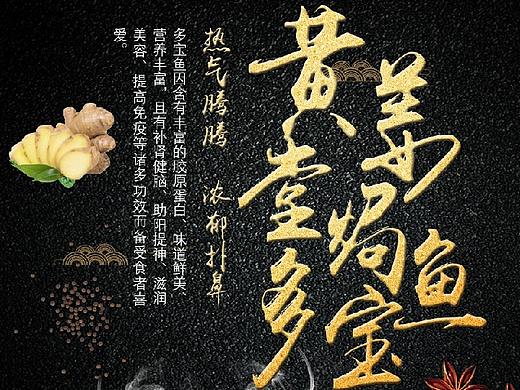 黄姜堂焗多宝鱼
热气腾腾 浓郁扑鼻
多宝鱼内含有丰富的胶原蛋白、味道鲜美、
营养丰富。且有补肾健脑、助阳提神、滋润
美容、提高免疫等诸多功效而备受食者喜
爱。